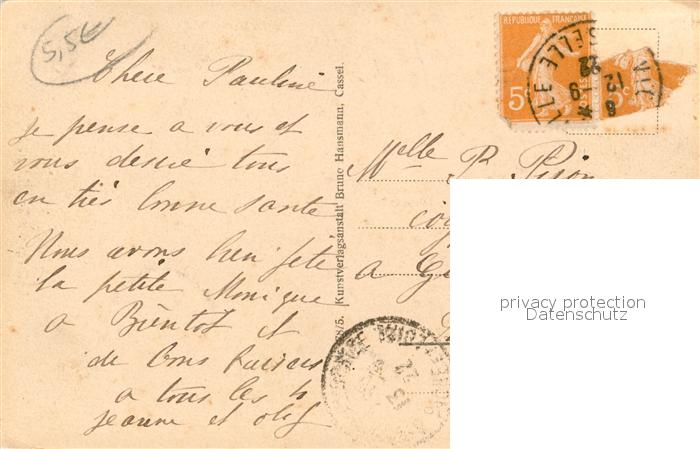 5,5€
Chere Pauline
je pense a vous et
vous desire tous
en très bonne sante
Nous avons bien fete
la petite Monique
a Bientot et
de bons baisers
a tous les
jeanne et
Kunstverlagsanstalt Bruno Hansmann, Cassel.
REPUBLIQUE FRANÇAISE
5c
5c
Melle P.
a
privacy protection
Datenschutz